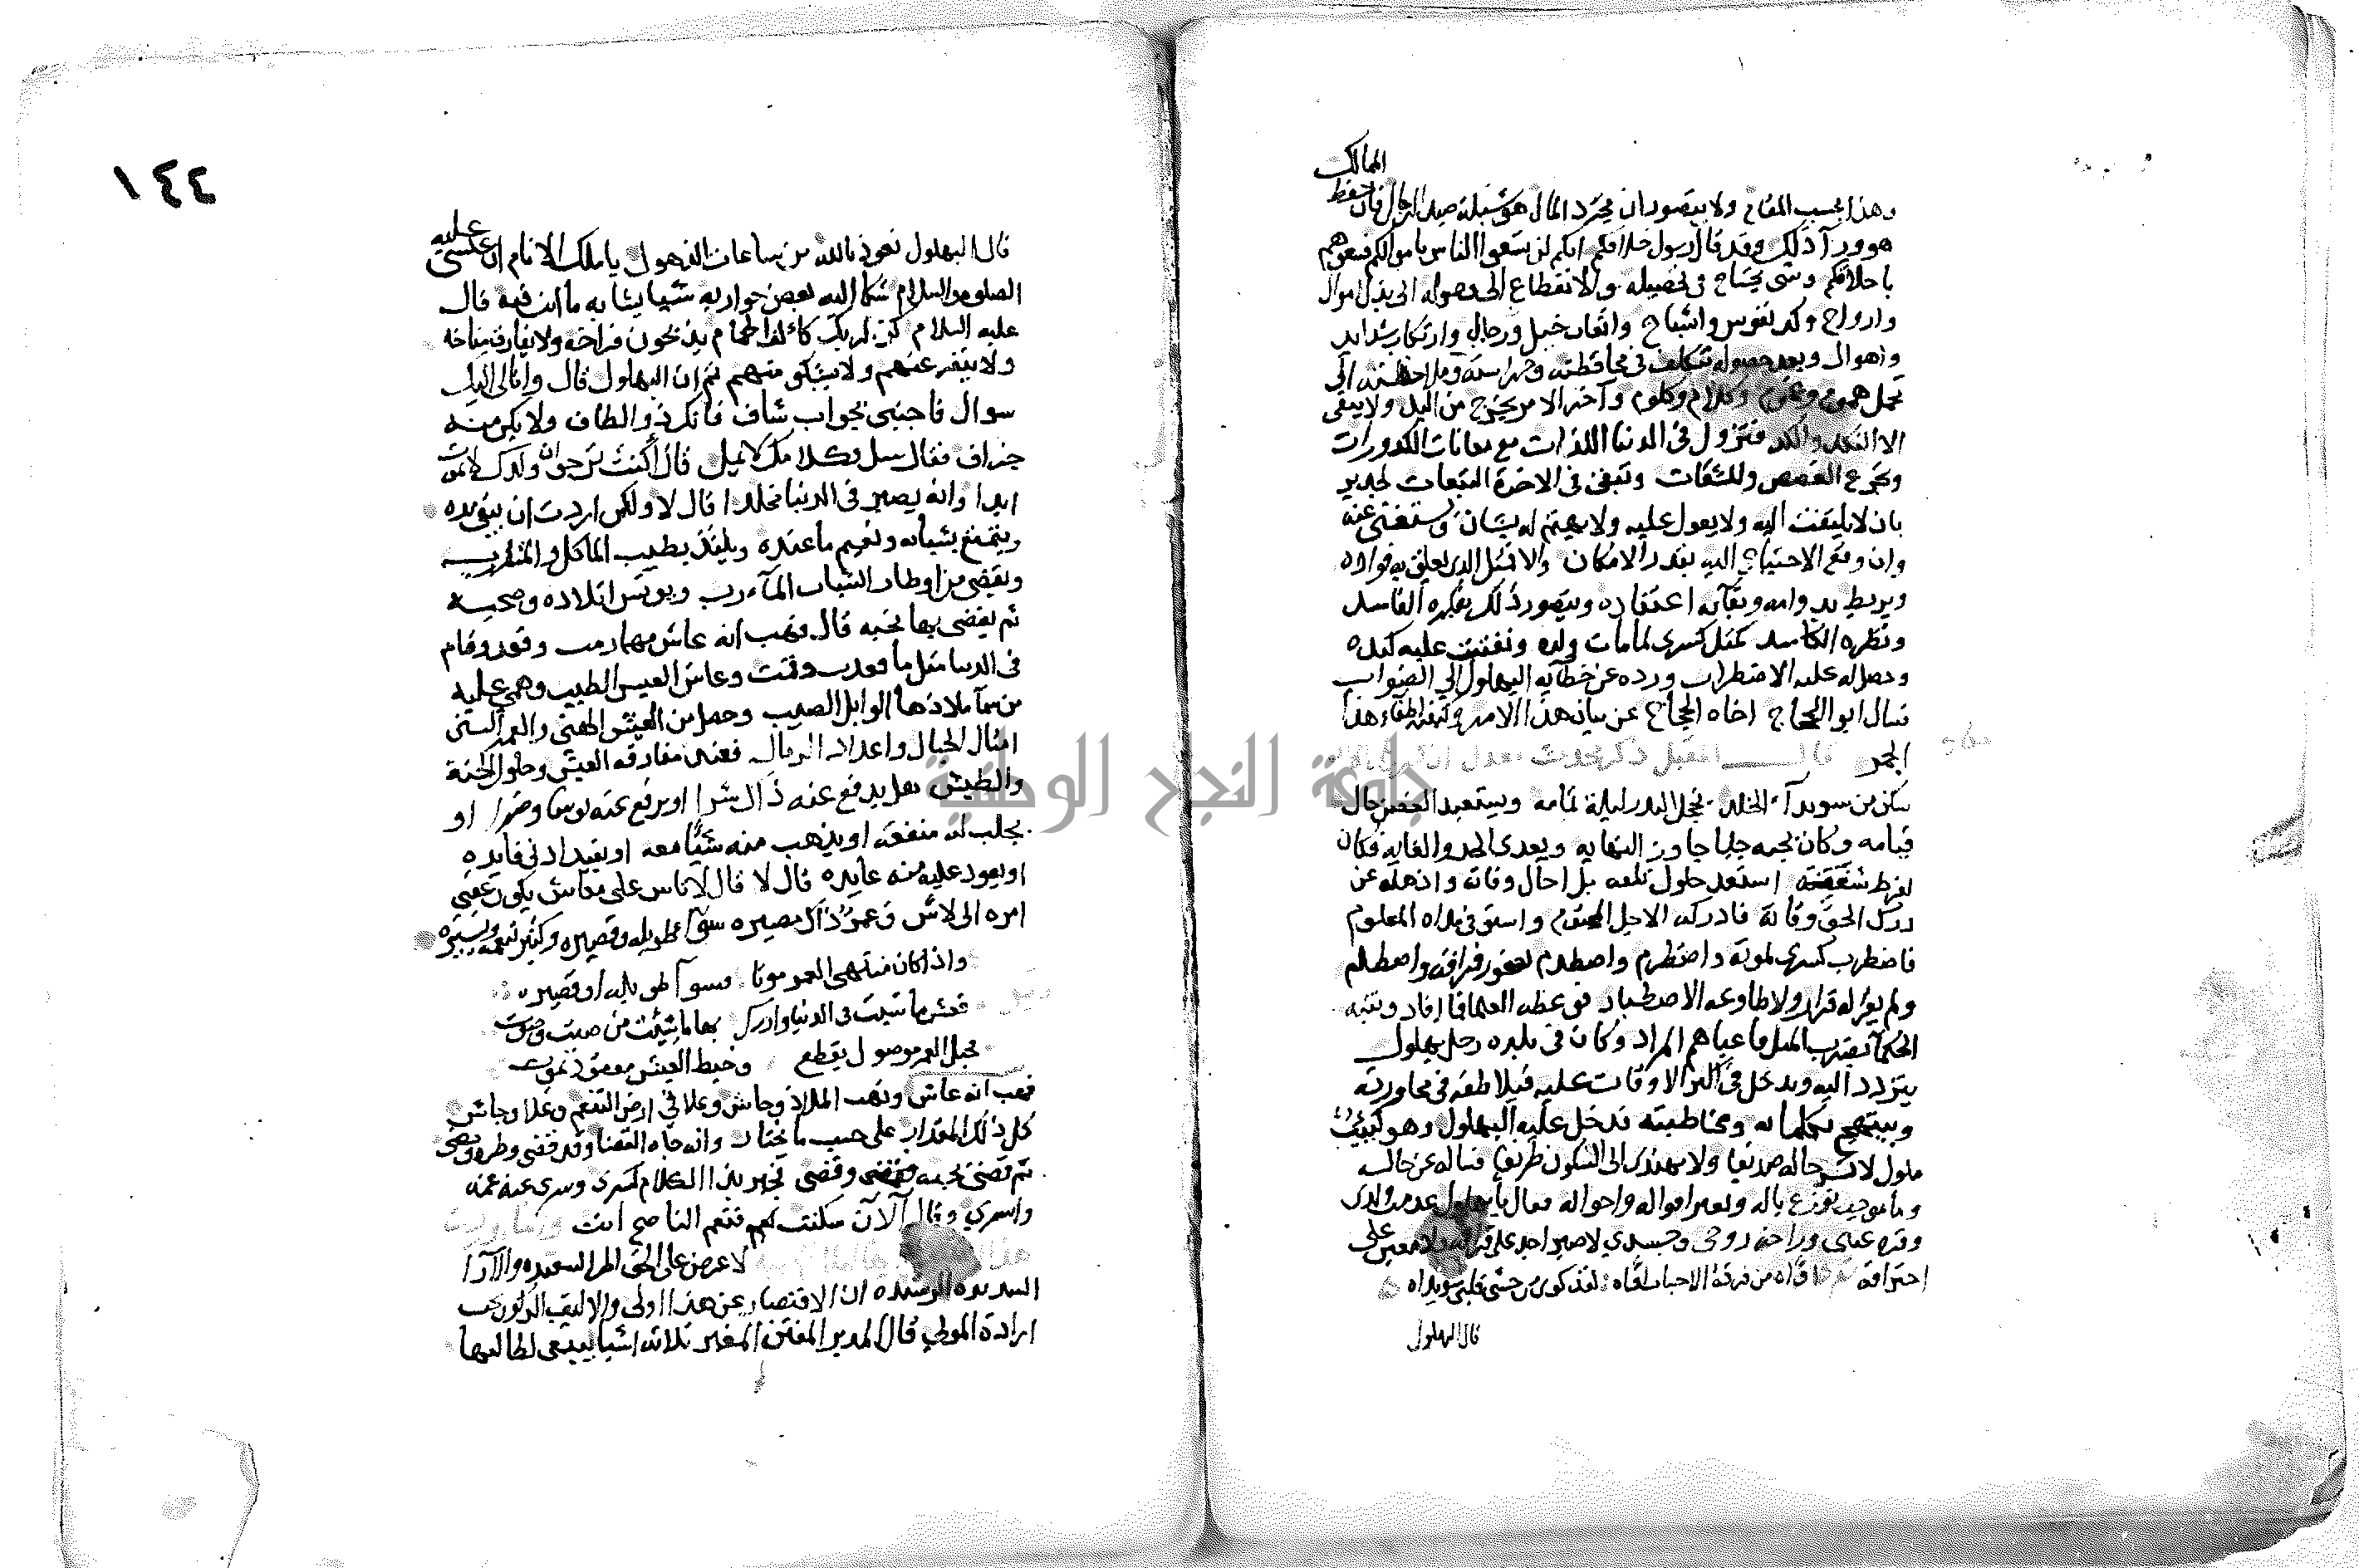 الممالك
وهذا بحسب المقام ولا يتصور ان مجرد المال هو شبكة صيد الرجال فان حفظ
هو ورآ ذلك وقد قال رسول خلاقكم انكم لن تسعوا الناس باموالكم فسعوهم
باخلاقكم وشي يحتاج في تحصيله والانقطاع الى وصوله الى بذل اموال
وارواح وكد نفوس واشباح واتعاب خيل ورجال وارتكاب شدايد
واهوال وبعد حصوله تتكلف في محافظته وحراسته وملاحظته الى
تحمل هموم وغموم وكلام وكلوم وآخر الامر يخرج من اليد ولا يبقى
الا النكد والكد فتزول في الدنيا اللذات مع معانات الكدورات
وتجرع الغصص والمشقات وتبقى في الاخرة التبعات لجدير
بان لا يلتفت اليه ولا يعول عليه ولا يهتم له بشان ويستغنى عنه
وان وقع الاحتياج اليه بقدر الامكان والا فمثل الذي يعلق به فواده
ويربط بدوامه وبقآيه اعتقاده ويتصور ذلك بفكره الفاسد
ونظره الكاسد كمثل كسرى لما مات ولده وتفتت عليه كبده
وحصل له عليه الاضطراب ورده عن خطآيه البهلول الى الصواب
فسال ابو الحجاج اخاه الحجاج عن بيان هذا الامر وكيفية اطفاء هذا
الجمر قال المقبل ذكر
سكن من سويدآ الخلد يخجل البدر ليلة تمامه ويستعبد الغصن حال
قيامه وكان يحبه حبا جاوز النهايه ويعدى الحد والغايه فكان
لفرط شغفته استبعد حلول تلفه بل احال وفاته واذهله عن
درك الحق وفاته فادركه الاجل المحتوم واستوفى مداه المعلوم
فاضطرب كسرى لموته واضطرم واصطدم لفراقه واصطلم
ولم يقر له قرار ولا طاوعه الاصطبار فوعظه العلما فما افاد ونبه
الحكما بضرب المثل فاعياهم المراد وكان في بلده رجل بهلول
يتردد اليه ويدخل في اكثر الاوقات عليه فيلاطفه في محاورته
ويبتهج بكلماته ومخاطبته فدخل عليه البهلول وهو كئيب
ملول لا يسر حاله صديقا ولا يهتدي الى السكون طريقا فساله عن حاله
وما موجب توزع باله وتغير اقواله واحواله فقال يا بهلول عدمت ولدي
وقرة عيني وراحة روحي وجسدي لا صبر اجد على فراقه ولا معين على
احتراقه من فرقة الاحباب لقاه لقد كوى حشى قلبي سويداه
قال البهلول
١٤٤
قال البهلول نعوذ بالله من ساعات الذهول يا ملك الانام ان عيسى عليه
الصلوه والسلام شكا اليه بعض حواريه شيا يشابه ما انت فيه قال
عليه السلام كن لربك كالف الحمام يذبحون فراخه ولا يفارق مناخه
ولا ينفر عنهم ولا يشكو منهم ثم ان البهلول قال واتى اليك
سوال فاجبني بجواب شاف فانك ذو الطاف ولا يكن منه
جزاف فقال سل وكلامك لا تميل قال أكنت ترجو ان ولدك لا يموت
ابدا وانه يصير في الدنيا مخلدا قال لا ولكن اردت ان يبقى مده
ويتمتع بشبابه ونعيم ما عنده ويلتذ بطيب الماكل والمشرب
ويقضي من اوطار الشباب المآرب ويونس اتلاده وصحبه
ثم يقضي بها نحبه قال فهب انه عاش مهما رمت وقعد وقام
في الدنيا مثل ما قعدت وقمت وعاش العيش الطيب وهمى عليه
من سمآ ملاذها الوابل الصيب وحصل من العيش الهني والعمر السني
امثال الجبال واعداد الرمال فعند مفارقه العيش وحلول المحنة
والطيش هل يدفع عنه ذاك شرا او يرفع عنه بوسا وضرا او
يجلب له منفعة او يذهب منه شيًا معه او يفيد ادنى فايده
او يعود عليه منه عايده قال لا قال لا تاس على معاش يكون عقبى
امره الى لاش وعمر ذاك مصيره سوآ طويله وقصيره وكثير نعمه ويسيره
واذا كان منتهى العمر موتا فسوآ طويله او قصيره
فعش ما شيت في الدنيا وادرك بها ما شئت من صيت وصوت
فحبل العمر موصول بقطع وخيط العيش معقود بموت
فهب انه عاش ونهب الملاذ وحاش وعلا في ارض التنعم وعلا وجاش
كل ذلك المقدار على حسب ما تختار وانه جآه القضا وقد قضى وطره ومضى
ثم قضى نحبه وقضى فبهر بهذا الكلام كسرى وسرى عنه غمه
واسري وقال الآن سكنت لهم فنعم الناصح انت
لا عرض على الحق المرا السعيده والآرا
السديده الرشيده ان الاقتصار عن هذا اولى والاليق الركون بحب
ارادة المولى قال المدير المفتن المغير ثلاثه اشيا ينبغي لطالبها
جامعة النجاح الوطنية